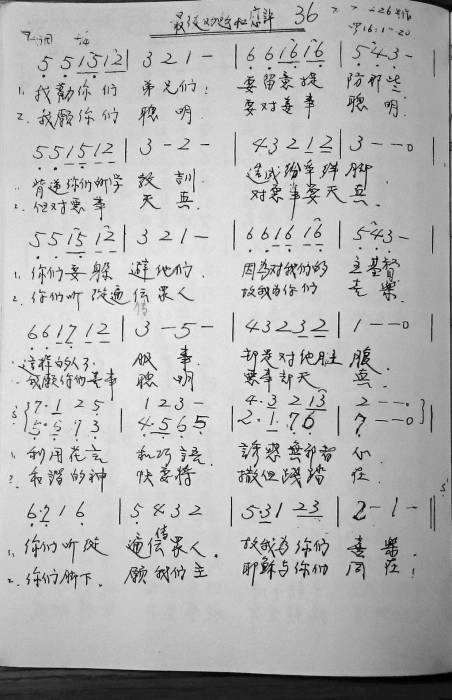 最後的 36
罗16:1-20
5 5 1 5 1 2 | 3 2 1 - | 6 6 1 6 1 6 | 5 4 3 -
1. 我勸你们 弟兄们: 要留意提 防那些
2. 我願你们 聰 明. 要对善事 聰 明.
5 5 1 5 1 2 | 3 - 2 - | 4 3 2 1 2 | 3 - - 0
1. 背道你们所学 教 訓. 造成纷争绊 脚
2. 但对惡事 天 真. 对惡事要天 真.
5 5 1 5 1 2 | 3 2 1 - | 6 6 1 6 1 6 | 5 4 3 -
1. 你们要躲 避他们. 因為对我们的 主基督
2. 你们听從遍 传眾人 故我为你们 喜樂.
6 6 1 7 1 2 | 3 - 5 - | 4 3 2 3 2 | 1 - - 0
1. 這样的人不 服 事. 却是对他肚 腹.
2. 我願你们善事 聰 明 惡事却天 真.
7 · 1 2 5 | 1 2 3 - | 4 · 3 2 1 3 | 2 - - 0
5 · 5 7 3 | 4 · 5 6 5 | 2 · 1 7 6 | 7 - - 0
1. 利用花言 和巧語. 誘惑無邪者 心
2. 和諧的神 快要将 撒但踐踏 在.
6 · 2 1 6 | 5 4 3 2 | 5 3 1 2 3 | 2 - 1 -
1. 你们听從 遍传眾人. 故我为你们 喜樂.
2. 你们脚下. 願我们主 耶穌与你们 同在!